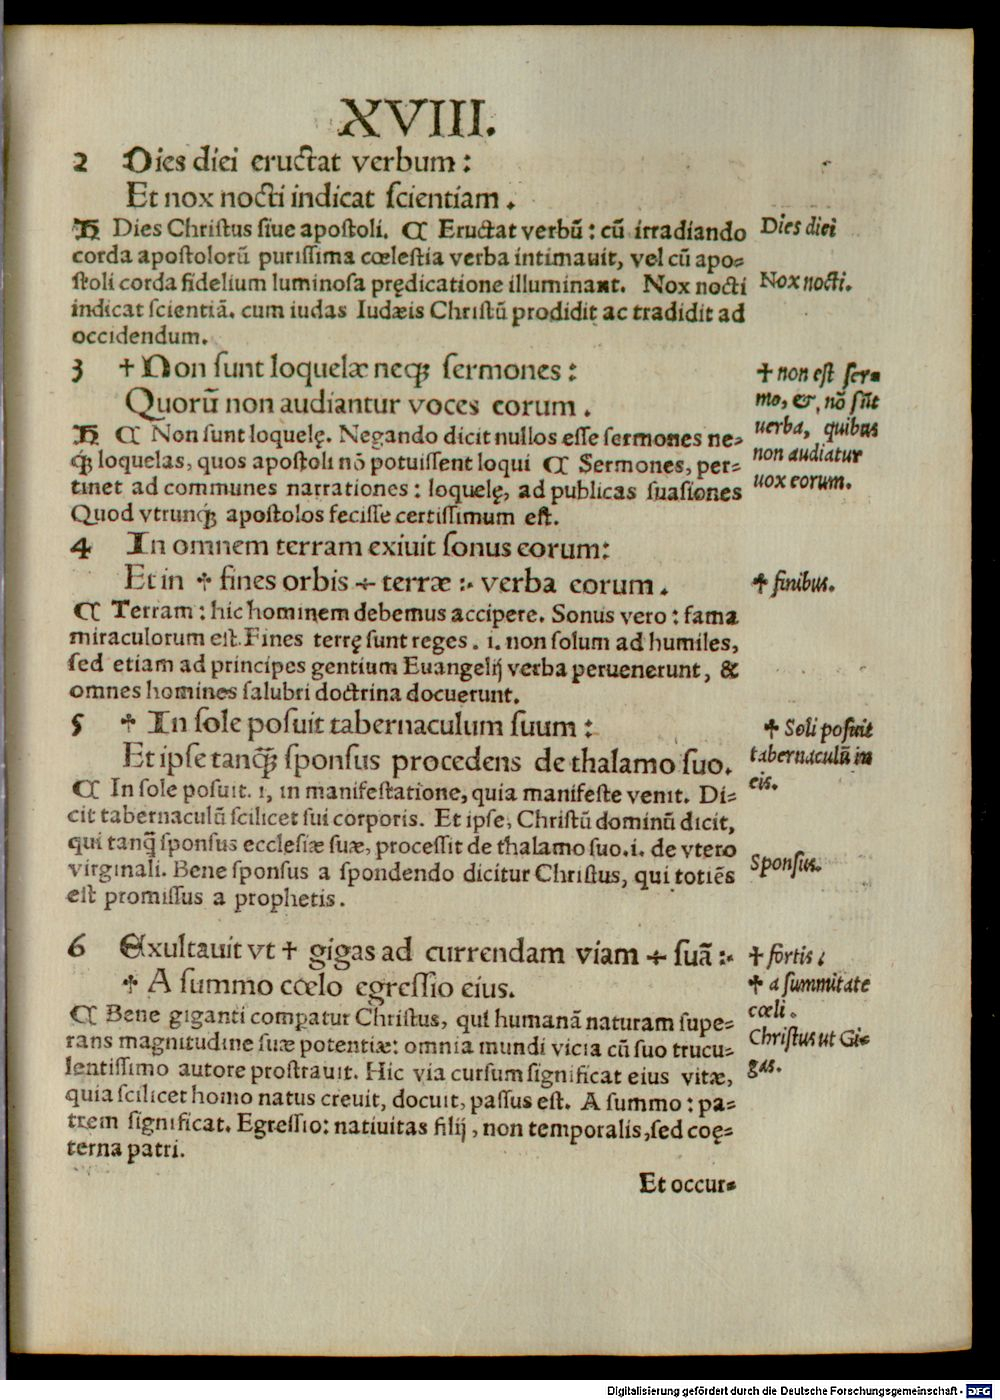 XVIII.
2 Dies diei eructat verbum :
Et nox nocti indicat ſcientiam .
Dies Chriſtus ſiue apoſtoli. ¶ Eructat verbū : cū irradiando
corda apoſtolorū puriſſima cœleſtia verba intimauit, vel cū apo⸗
ſtoli corda fidelium luminoſa prędicatione illuminant. Nox nocti
indicat ſcientiā. cum iudas Iudæis Chriſtū prodidit ac tradidit ad
occidendum.
Dies diei
Nox nocti.
3 ✝ Non ſunt loquelæ neqꝫ ſermones :
Quorū non audiantur voces eorum .
¶ Non ſunt loquelę. Negando dicit nullos eſſe ſermones ne⸗
qꝫ loquelas, quos apoſtoli nō potuiſſent loqui ¶ Sermones, per⸗
tinet ad communes narrationes : loquelę, ad publicas ſuaſiones
Quod vtrunqꝫ apoſtolos feciſſe certiſſimum eſt.
✝ non eſt ſer⸗
mo, &, nō ſūt
uerba, quibus
non audiatur
uox eorum.
4 In omnem terram exiuit ſonus eorum:
Et in ✝ fines orbis ÷ terræ :· verba eorum .
✝ finibus.
¶ Terram : hic hominem debemus accipere. Sonus vero : fama
miraculorum eſt. Fines terrę ſunt reges . i. non ſolum ad humiles,
ſed etiam ad principes gentium Euangelij verba peruenerunt, &
omnes homines ſalubri doctrina docuerunt.
5 ✝ In ſole poſuit tabernaculum ſuum :
Et ipſe tanqꝫ ſponſus procedens de thalamo ſuo.
¶ In ſole poſuit. i, in manifeſtatione, quia manifeſte venit. Di⸗
cit tabernaculū ſcilicet ſui corporis. Et ipſe, Chriſtū dominū dicit,
qui tanq̄ ſponſus eccleſiæ ſuæ, proceſſit de thalamo ſuo.i. de vtero
virginali. Bene ſponſus a ſpondendo dicitur Chriſtus, qui totiēs
eſt promiſſus a prophetis .
✝ Soli poſuit
tabernaculū in
eis.
Sponſus.
6 Exultauit vt ✝ gigas ad currendam viam ÷ ſuā :·
✝ A ſummo cœlo egreſſio eius.
¶ Bene giganti compatur Chriſtus, qui humanā naturam ſupe⸗
rans magnitudine ſuæ potentiæ: omnia mundi vicia cū ſuo trucu⸗
lentiſſimo autore proſtrauit. Hic via curſum ſignificat eius vitæ,
quia ſcilicet homo natus creuit, docuit, paſſus eſt. A ſummo : pa⸗
trem ſignificat. Egreſſio: natiuitas filij , non temporalis,ſed coę⸗
terna patri.
✝ fortis :
✝ a ſummitate
cœli .
Chriſtus ut Gi⸗
gas.
Et occur⸗
Digitalisierung gefördert durch die Deutsche Forschungsgemeinschaft - DFG